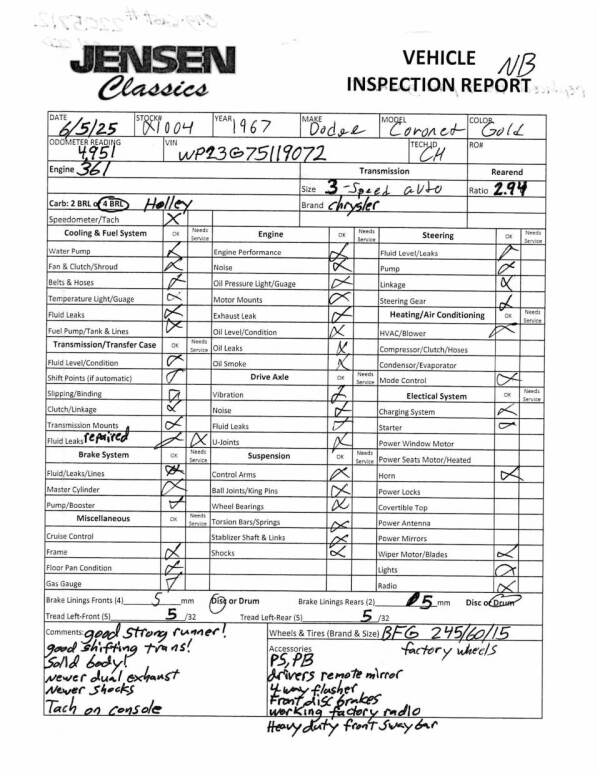 JENSEN
Classics
VEHICLE
INSPECTION REPORT
NB
DATE STOCK# YEAR MAKE MODEL COLOR
6/5/25 X1004 1967 Dodge Coronet Gold
ODOMETER READING VIN TECH ID RO#
4,951 WP23G75119072 CH
Engine 361 Transmission Rearend
Size 3-Speed auto Ratio 2.94
Carb: 2 BRL or 4 BRL Holley Brand Chrysler
Speedometer/Tach X
Cooling & Fuel System OK Needs Service Engine OK Needs Service Steering OK Needs Service
Water Pump Engine Performance Fluid Level/Leaks
Fan & Clutch/Shroud Noise Pump
Belts & Hoses Oil Pressure Light/Guage Linkage
Temperature Light/Guage Motor Mounts Steering Gear
Fluid Leaks Exhaust Leak Heating/Air Conditioning OK Needs Service
Fuel Pump/Tank & Lines Oil Level/Condition HVAC/Blower
Transmission/Transfer Case OK Needs Service Oil Leaks Compressor/Clutch/Hoses
Fluid Level/Condition Oil Smoke Condensor/Evaporator
Shift Points (if automatic) Drive Axle OK Needs Service Mode Control
Slipping/Binding Vibration Electical System OK Needs Service
Clutch/Linkage Noise Charging System
Transmission Mounts Fluid Leaks Starter
Fluid Leaks repaired X U-Joints Power Window Motor
Brake System OK Needs Service Suspension OK Needs Service Power Seats Motor/Heated
Fluid/Leaks/Lines Control Arms Horn
Master Cylinder Ball Joints/King Pins Power Locks
Pump/Booster Wheel Bearings Covertible Top
Miscellaneous OK Needs Service Torsion Bars/Springs Power Antenna
Cruise Control Stablizer Shaft & Links Power Mirrors
Frame Shocks Wiper Motor/Blades
Floor Pan Condition Lights
Gas Gauge Radio
Brake Linings Fronts (4) 5 mm Disc or Drum Brake Linings Rears (2) 5 mm Disc or Drum
Tread Left-Front (5) 5 /32 Tread Left-Rear (5) 5 /32
Comments: good strong runner!
good shifting trans!
Solid body!
newer dual exhaust
Newer shocks
Tach on console
Wheels & Tires (Brand & Size) BFG 245/60/15
factory wheels
Accessories
PS, PB
drivers remote mirror
4 way flasher
Front disc brakes
working factory radio
Heavy duty front sway bar